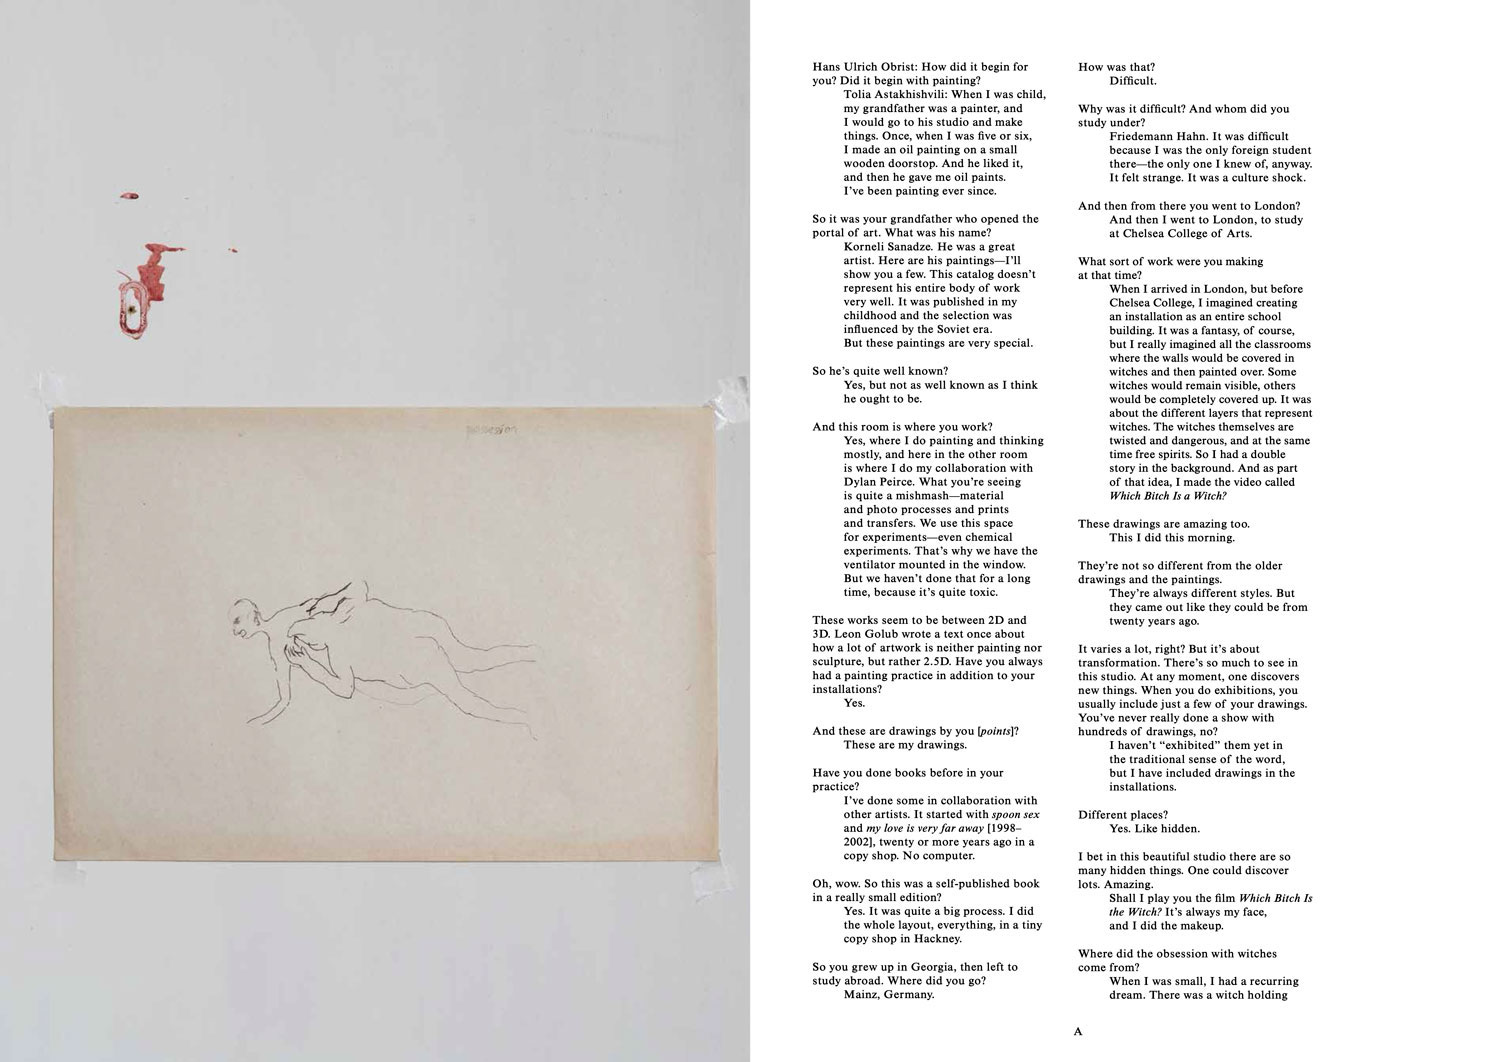 possession
Hans Ulrich Obrist: How did it begin for
you? Did it begin with painting?
Tolia Astakhishvili: When I was child,
my grandfather was a painter, and
I would go to his studio and make
things. Once, when I was five or six,
I made an oil painting on a small
wooden doorstop. And he liked it,
and then he gave me oil paints.
I’ve been painting ever since.
So it was your grandfather who opened the
portal of art. What was his name?
Korneli Sanadze. He was a great
artist. Here are his paintings—I’ll
show you a few. This catalog doesn’t
represent his entire body of work
very well. It was published in my
childhood and the selection was
influenced by the Soviet era.
But these paintings are very special.
So he’s quite well known?
Yes, but not as well known as I think
he ought to be.
And this room is where you work?
Yes, where I do painting and thinking
mostly, and here in the other room
is where I do my collaboration with
Dylan Peirce. What you’re seeing
is quite a mishmash—material
and photo processes and prints
and transfers. We use this space
for experiments—even chemical
experiments. That’s why we have the
ventilator mounted in the window.
But we haven’t done that for a long
time, because it’s quite toxic.
These works seem to be between 2D and
3D. Leon Golub wrote a text once about
how a lot of artwork is neither painting nor
sculpture, but rather 2.5D. Have you always
had a painting practice in addition to your
installations?
Yes.
And these are drawings by you [points]?
These are my drawings.
Have you done books before in your
practice?
I’ve done some in collaboration with
other artists. It started with spoon sex
and my love is very far away [1998–
2002], twenty or more years ago in a
copy shop. No computer.
Oh, wow. So this was a self-published book
in a really small edition?
Yes. It was quite a big process. I did
the whole layout, everything, in a tiny
copy shop in Hackney.
So you grew up in Georgia, then left to
study abroad. Where did you go?
Mainz, Germany.
How was that?
Difficult.
Why was it difficult? And whom did you
study under?
Friedemann Hahn. It was difficult
because I was the only foreign student
there—the only one I knew of, anyway.
It felt strange. It was a culture shock.
And then from there you went to London?
And then I went to London, to study
at Chelsea College of Arts.
What sort of work were you making
at that time?
When I arrived in London, but before
Chelsea College, I imagined creating
an installation as an entire school
building. It was a fantasy, of course,
but I really imagined all the classrooms
where the walls would be covered in
witches and then painted over. Some
witches would remain visible, others
would be completely covered up. It was
about the different layers that represent
witches. The witches themselves are
twisted and dangerous, and at the same
time free spirits. So I had a double
story in the background. And as part
of that idea, I made the video called
Which Bitch Is a Witch?
These drawings are amazing too.
This I did this morning.
They’re not so different from the older
drawings and the paintings.
They’re always different styles. But
they came out like they could be from
twenty years ago.
It varies a lot, right? But it’s about
transformation. There’s so much to see in
this studio. At any moment, one discovers
new things. When you do exhibitions, you
usually include just a few of your drawings.
You’ve never really done a show with
hundreds of drawings, no?
I haven’t “exhibited” them yet in
the traditional sense of the word,
but I have included drawings in the
installations.
Different places?
Yes. Like hidden.
I bet in this beautiful studio there are so
many hidden things. One could discover
lots. Amazing.
Shall I play you the film Which Bitch Is
the Witch? It’s always my face,
and I did the makeup.
Where did the obsession with witches
come from?
When I was small, I had a recurring
dream. There was a witch holding
A